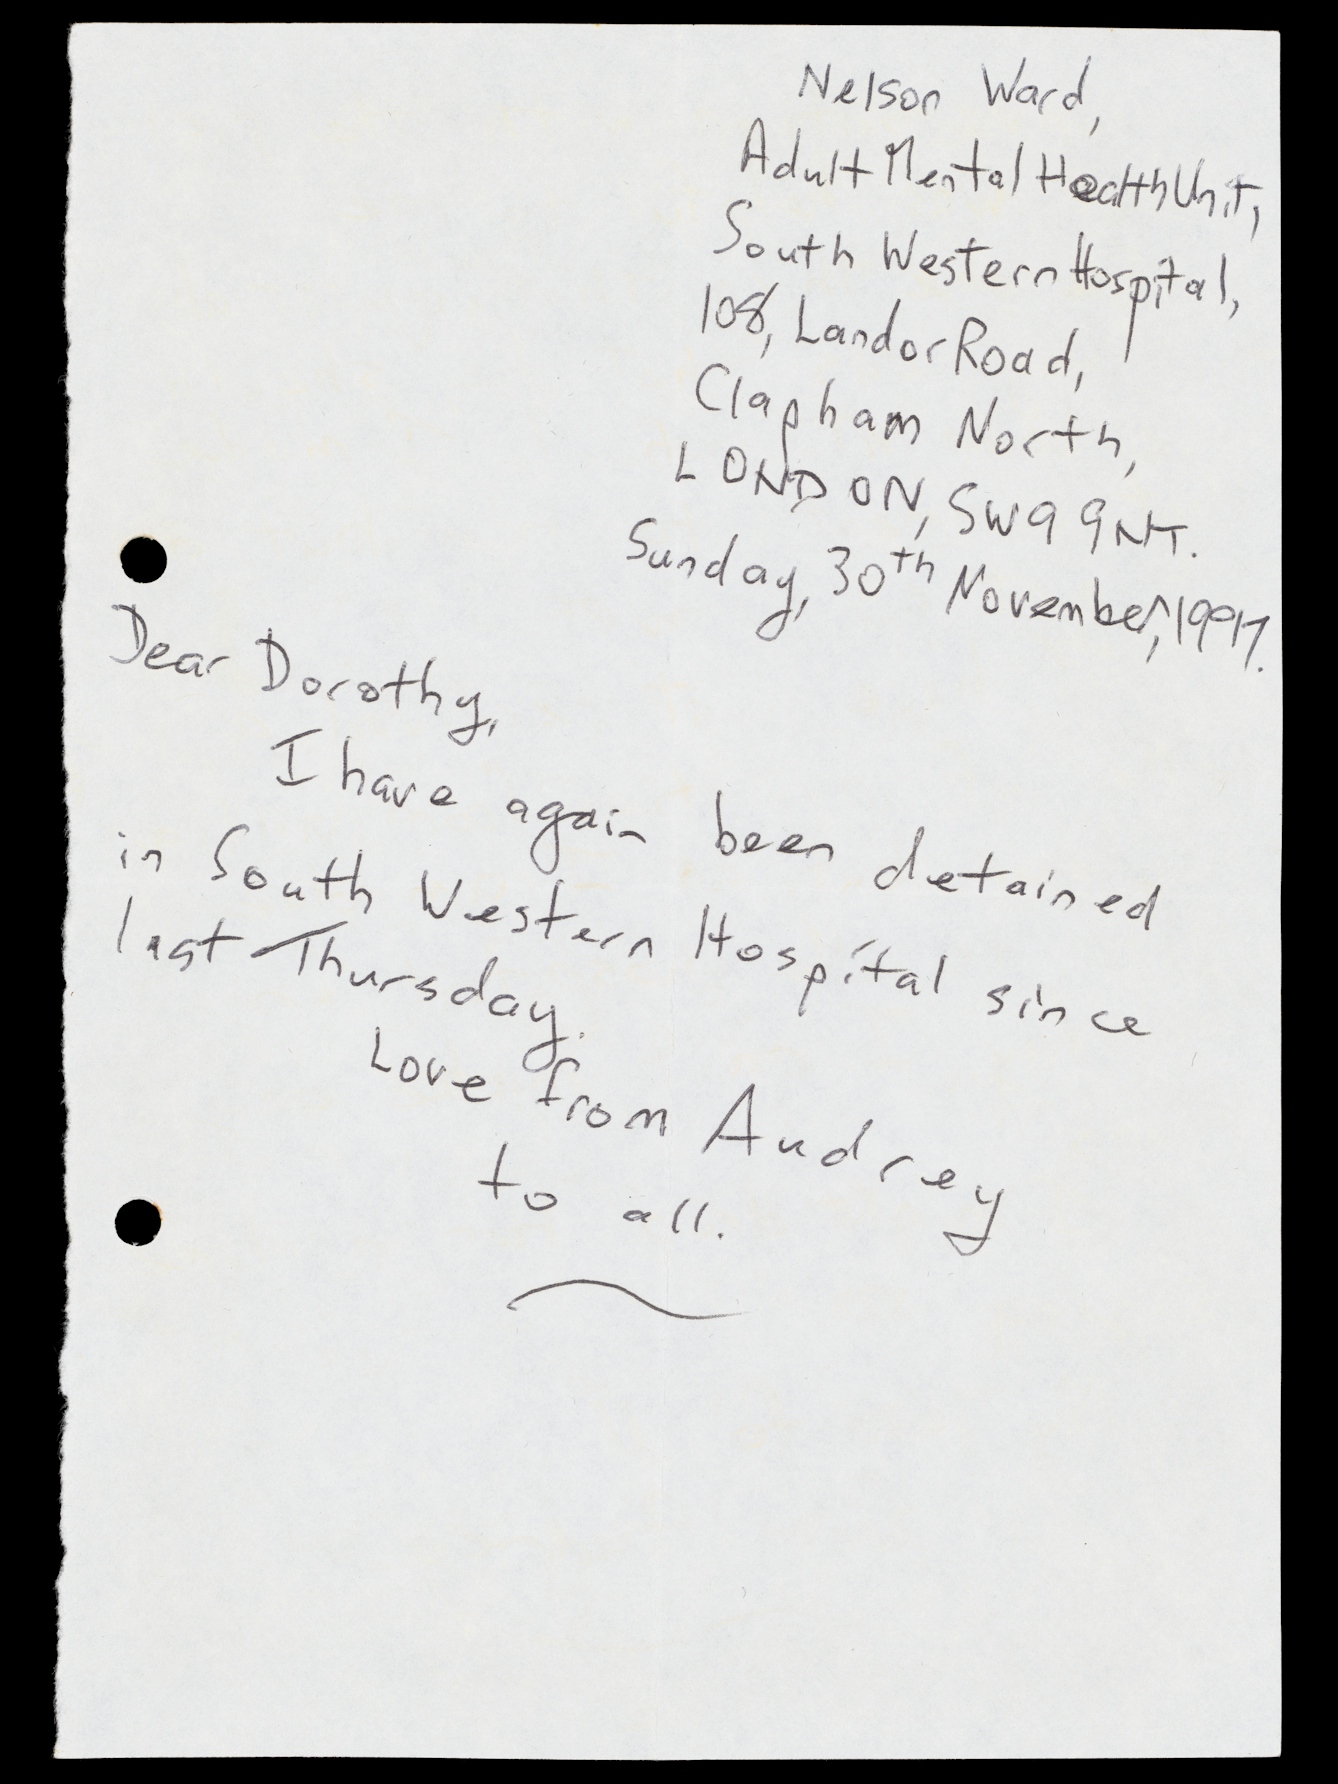 Nelson Ward,
Adult Mental Health Unit,
South Western Hospital,
108, Landor Road,
Clapham North,
LONDON, SW9 9NT.
Sunday, 30th November, 1997.
Dear Dorothy,
I have again been detained
in South Western Hospital since
last Thursday.
Love from Audrey
to all.